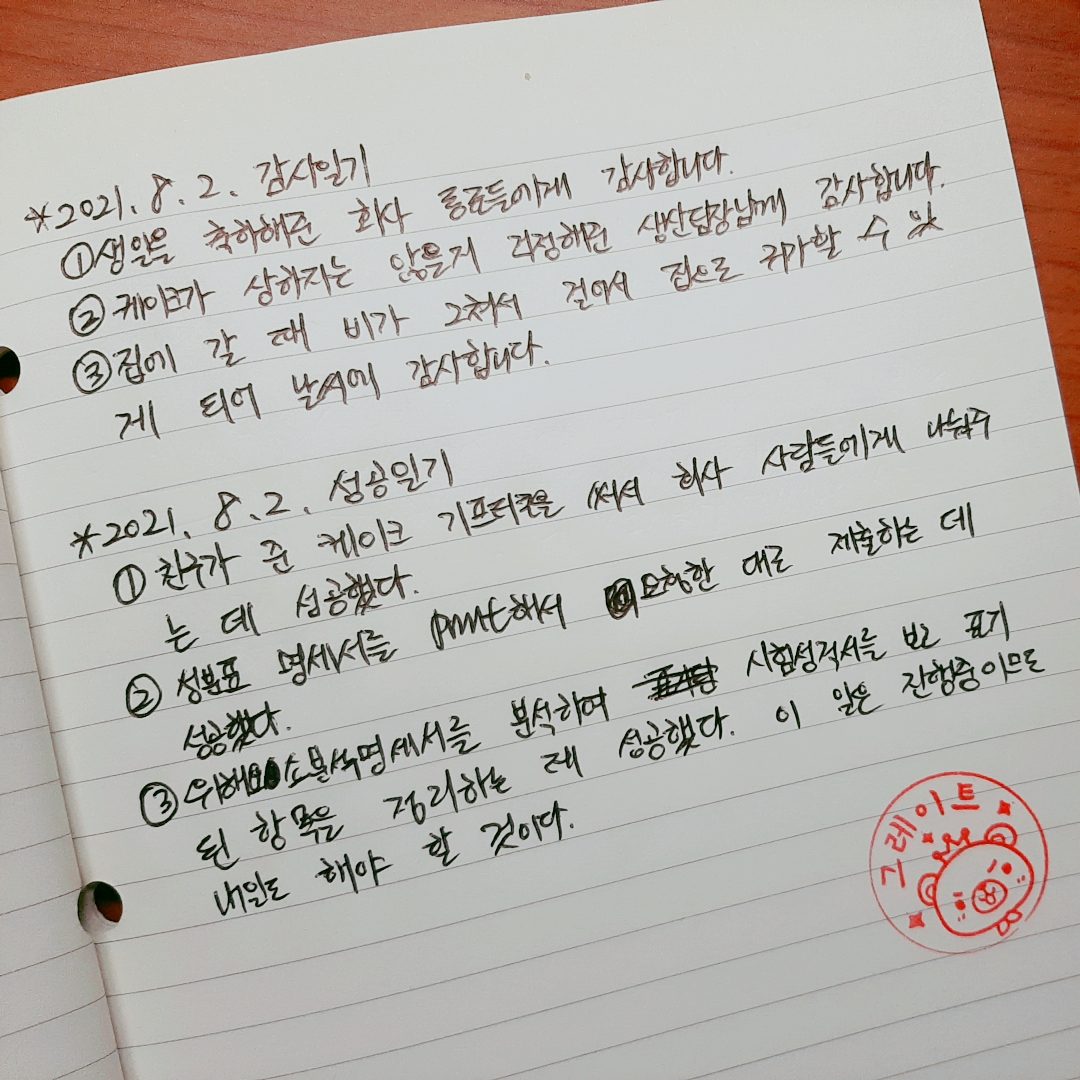 *2021. 8. 2. 감사일기
①생일을 축하해준 회사 동료들에게 감사합니다.
②케이크가 상하지는 않을지 걱정해준 생산팀장님께 감사합니다.
③집에 갈 때 비가 그쳐서 걸어서 집으로 귀가할 수 있
게 되어 날씨에 감사합니다.
*2021. 8. 2. 성공일기
① 친구가 준 케이크 기프티콘을 써서 회사 사람들에게 나눠주
는 데 성공했다.
② 성분표 명세서를 print해서 요청한 대로 제출하는 데
성공했다.
③ 위해요소분석명세서를 분석하여 시험성적서를 보고 표기
된 항목을 정리하는 데 성공했다. 이 일은 진행중이므로
내일도 해야 할 것이다.
그레이트